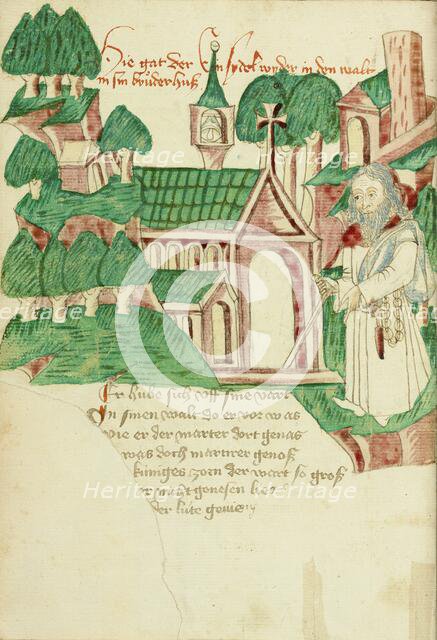 Hie gat der Einsydel wyder in den walt
in sin bruͦderhuß
Er hube sich vff sine vart
In sinen walt do er vor was
Wie er der marter dort genas
was doch martirer genoß
küniges zorn der wart so groß
er nicht genesen
der lute
Heritage
Heritage
Heritage
Heritage
Heritage
Heritage